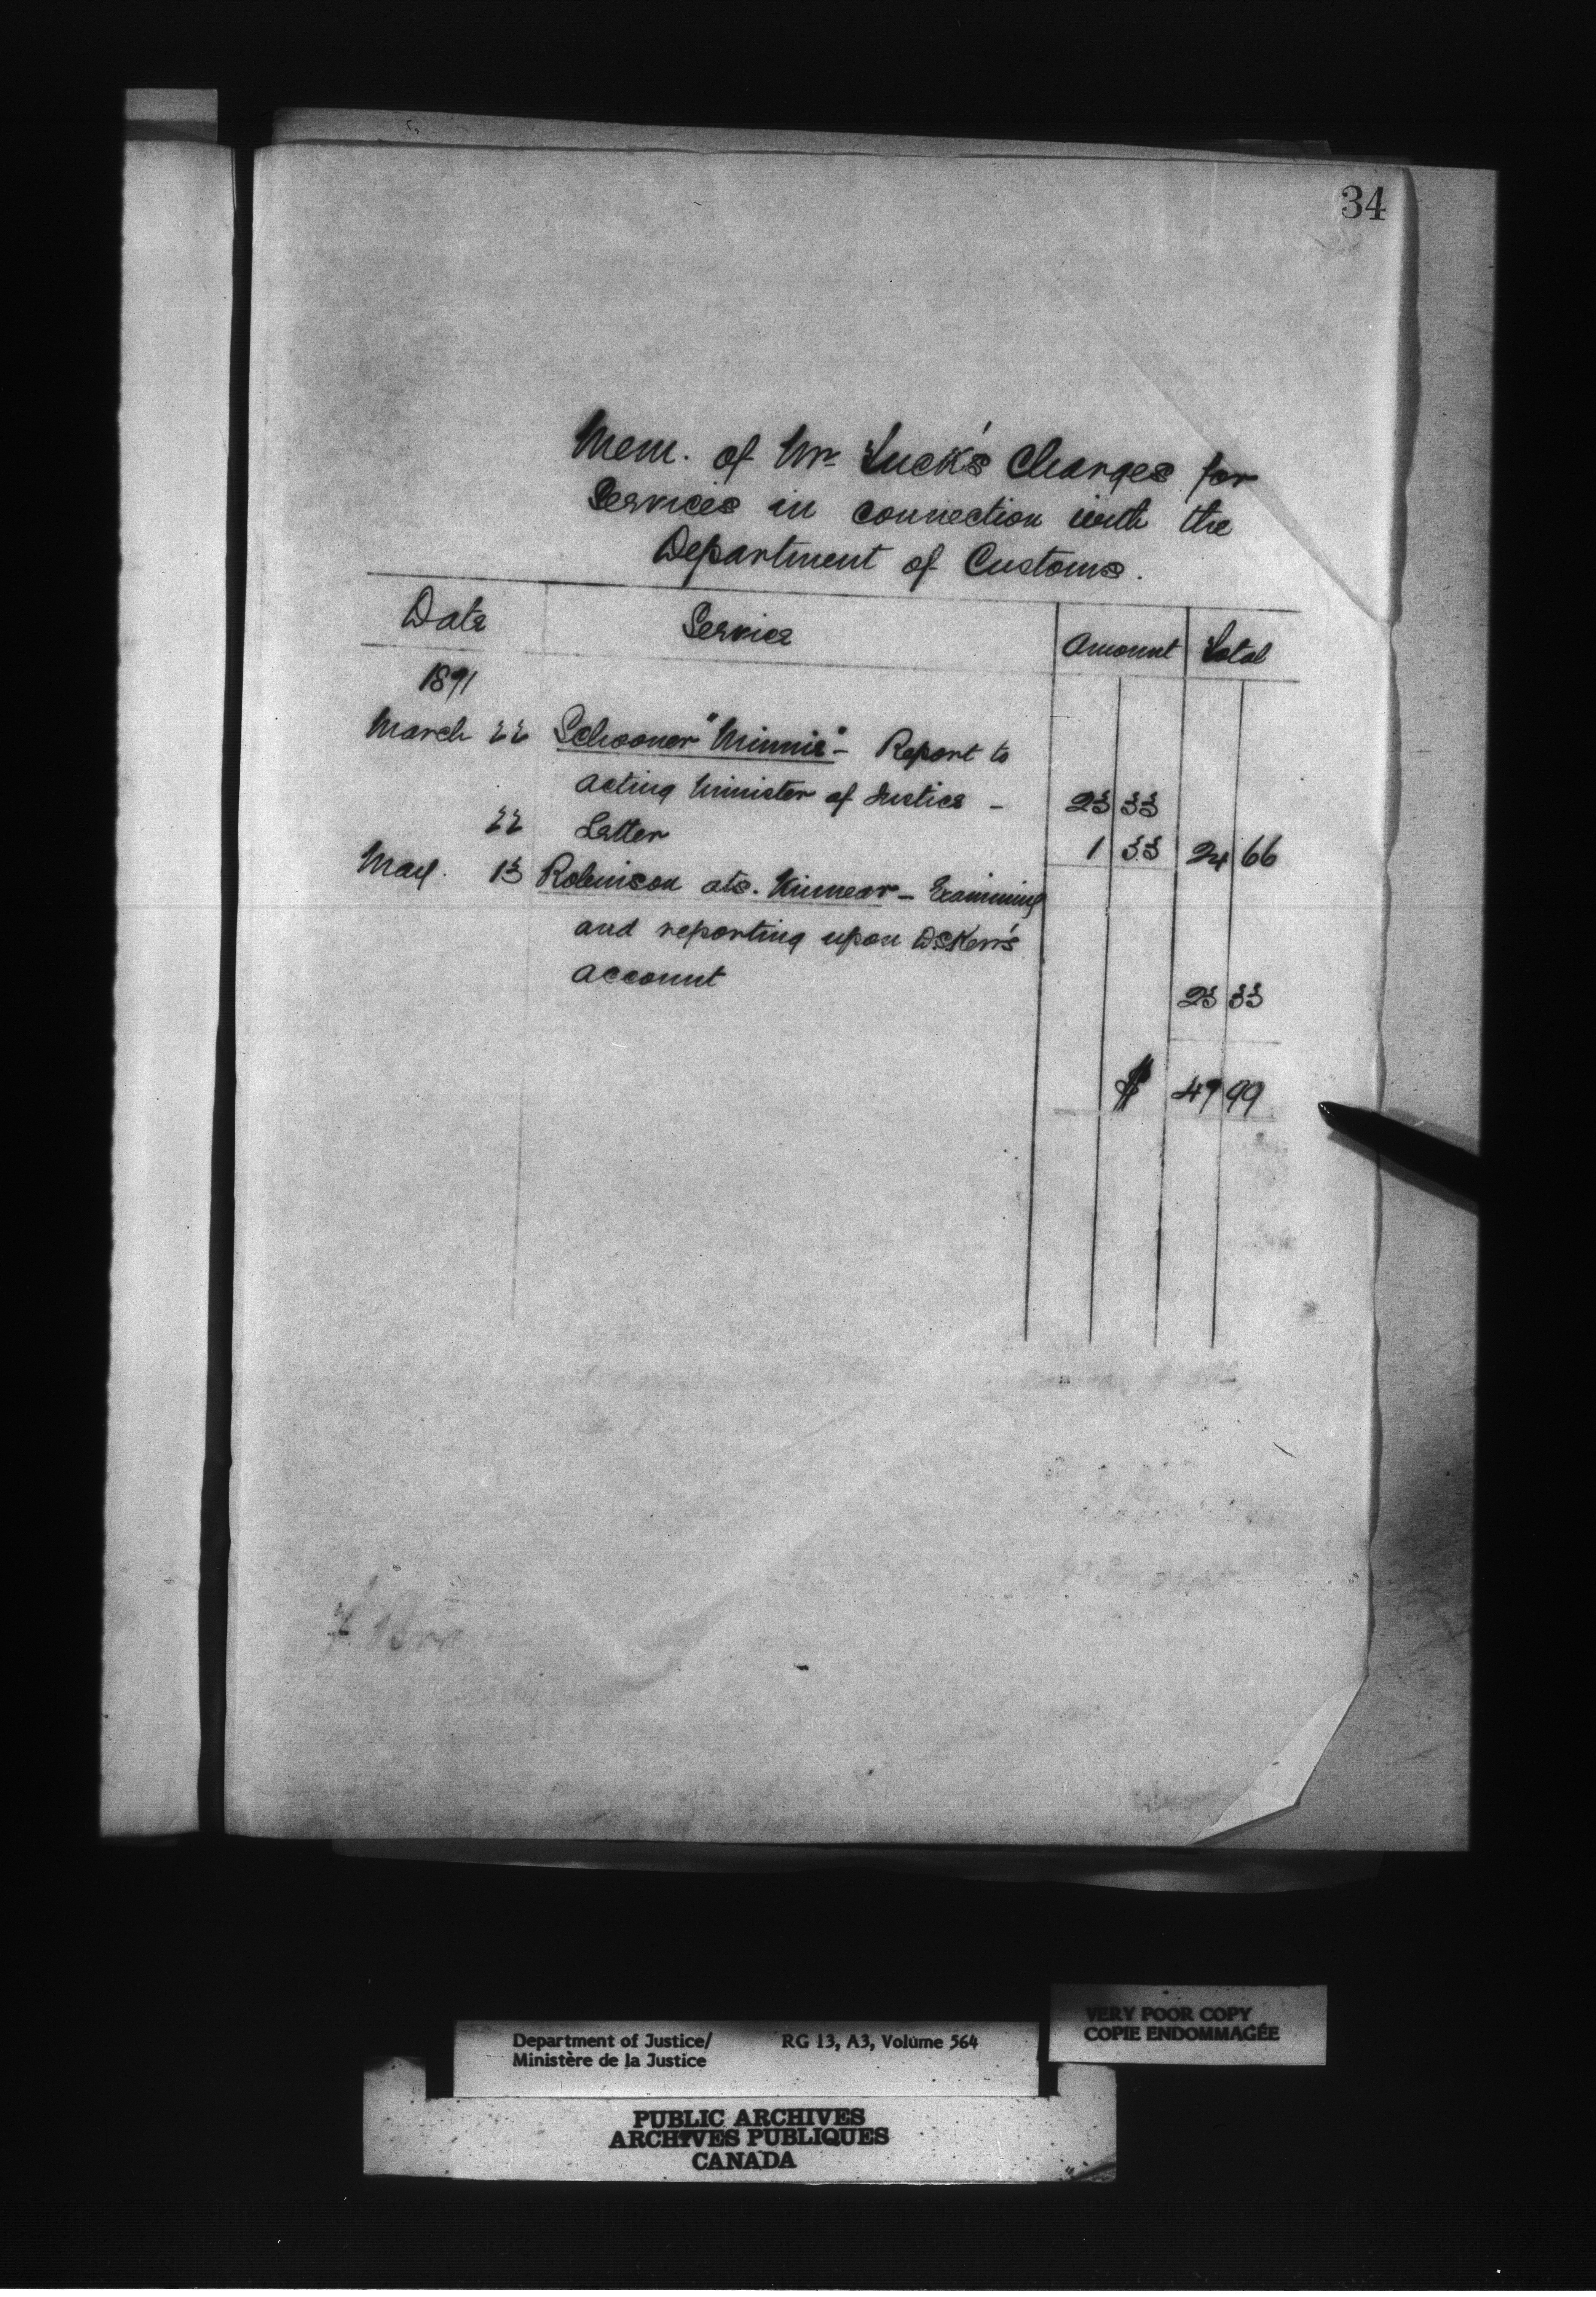 34
Mem. of Mr Tuck's Charges for
Services in connection with the
Department of Customs.
Date Service Amount Total
1891
March 22 Schooner "Minnie" - Report to
acting Minister of Justice - 23 33
22 Letter 1 33 24 66
May. 13 Robinson ats. Kinnear - Examining
and reporting upon D.S. Kerr's
account
23 33
$ 47 99
Department of Justice/ RG 13, A3, Volume 564
Ministère de la Justice
VERY POOR COPY
COPIE ENDOMMAGÉE
PUBLIC ARCHIVES
ARCHIVES PUBLIQUES
CANADA